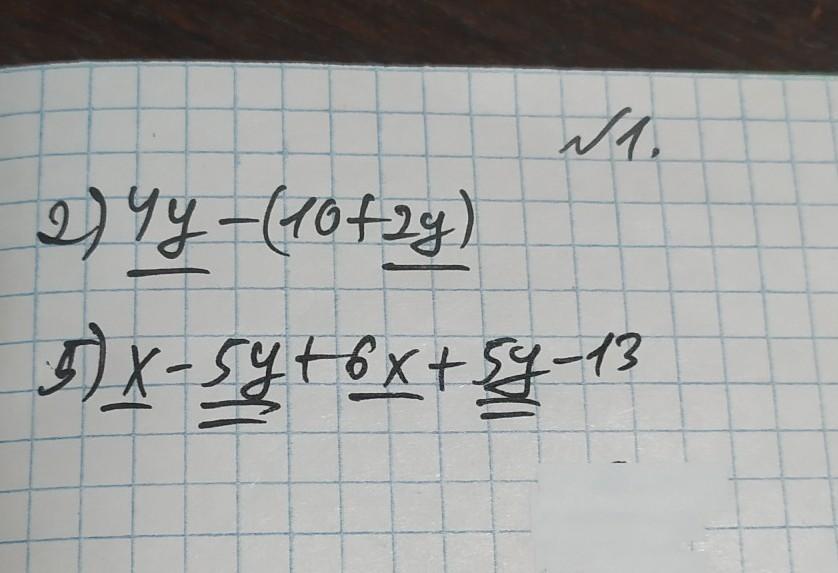 №1.
2) 4y - (10 + 2y)
5) x - 5y + 6x + 5y - 13